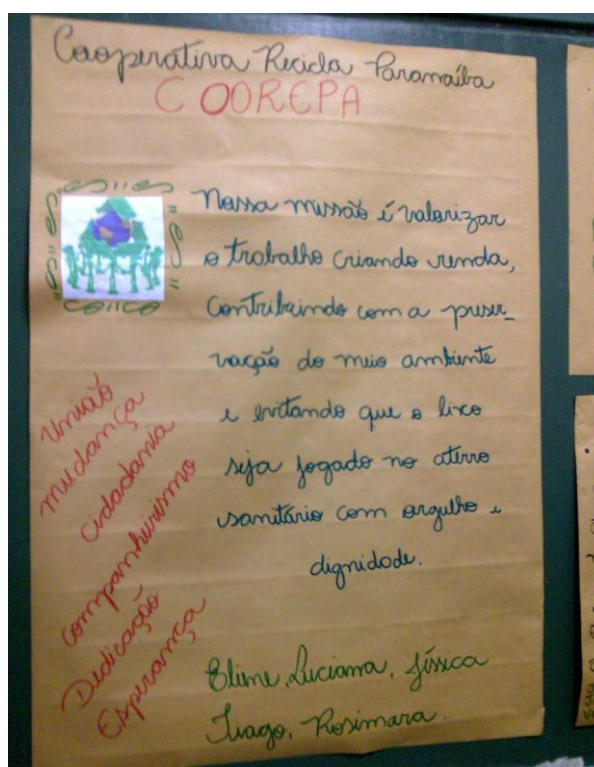 Cooperativa Recicla Paranaíba
COOREPA
Nossa missão é valorizar
o trabalho criando renda,
Contribuindo com a preser_
vação do meio ambiente
e evitando que o lixo
seja jogado no aterro
sanitário com orgulho e
dignidade.
União
mudança
cidadania
companheirismo
Dedicação
Esperança
Eliene, Luciana, Jéssica
Tiago, Rosimara.